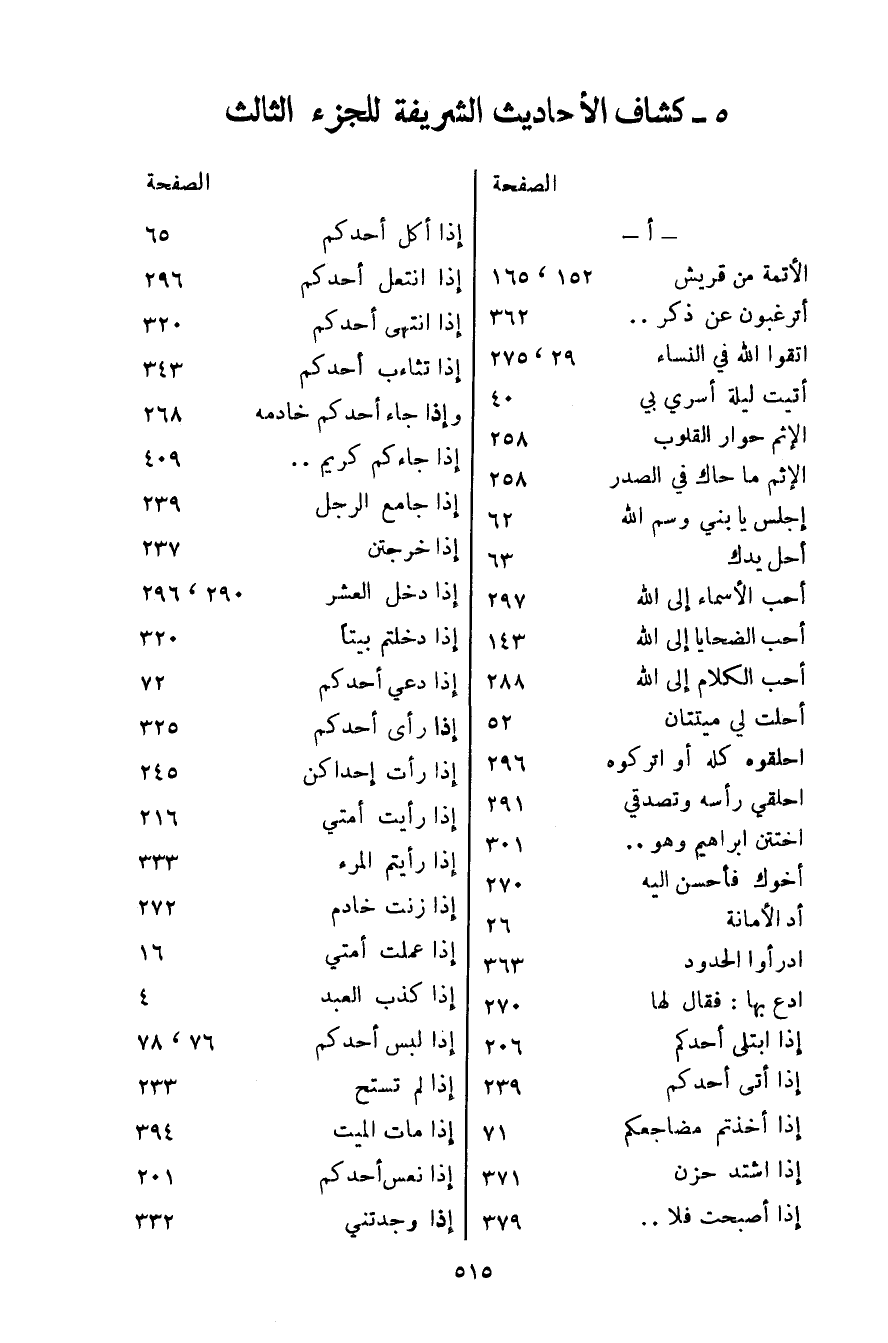 ٥ - كشاف الأحاديث الشريفة للجزء الثالث
الصفحة
- أ -
الأئمة من قريش ١٥٢ ، ١٦٥
أترغبون عن ذكر .. ٣٦٢
اتقوا الله في النساء ٢٩ ، ٢٧٥
أتيت ليلة أسري بي ٤٠
الإثم حوار القلوب ٢٥٨
الإثم ما حاك في الصدر ٢٥٨
إجلس يا بني وسم الله ٦٢
أحل يدك ٦٣
أحب الأسماء إلى الله ٢٩٧
أحب الضحايا إلى الله ١٤٣
أحب الكلام إلى الله ٢٨٨
أحلت لي ميتتان ٥٢
احلقوه كله أو اتركوه ٢٩٦
احلقي رأسه وتصدقي ٢٩١
اختتن ابراهيم وهو .. ٣٠١
أخوك فأحسن اليه ٢٧٠
أد الأمانة ٢٦
ادرأوا الحدود ٣٦٣
ادع بها : فقال لها ٢٧٠
إذا ابتلى أحدكم ٢٠٦
إذا أتى أحدكم ٢٣٩
إذا أخذتم مضاجعكم ٧١
إذا اشتد حزن ٣٧١
إذا أصبحت فلا .. ٣٧٩
الصفحة
إذا أكل أحدكم ٦٥
إذا انتعل أحدكم ٢٩٦
إذا انتهى أحدكم ٣٢٠
إذا تثاءب أحدكم ٣٤٣
وإذا جاء أحدكم خادمه ٢٦٨
إذا جاءكم كريم .. ٤٠٩
إذا جامع الرجل ٢٣٩
إذا خرجتن ٢٣٧
إذا دخل العشر ٢٩٠ ، ٢٩٦
إذا دخلتم بيتأ ٣٢٠
إذا دعي أحدكم ٧٢
إذا رأى أحدكم ٣٢٥
إذا رأت إحداكن ٢٤٥
إذا رأيت أمتي ٢١٦
إذا رأيتم المرء ٣٣٣
إذا زنت خادم ٢٧٢
إذا عملت أمتي ١٦
إذا كذب العبد ٤
إذا لبس أحدكم ٧٦ ، ٧٨
إذا لم تستح ٢٣٣
إذا مات الميت ٣٩٤
إذا نعس أحدكم ٢٠١
إذا وجدتني ٣٣٢
٥١٥